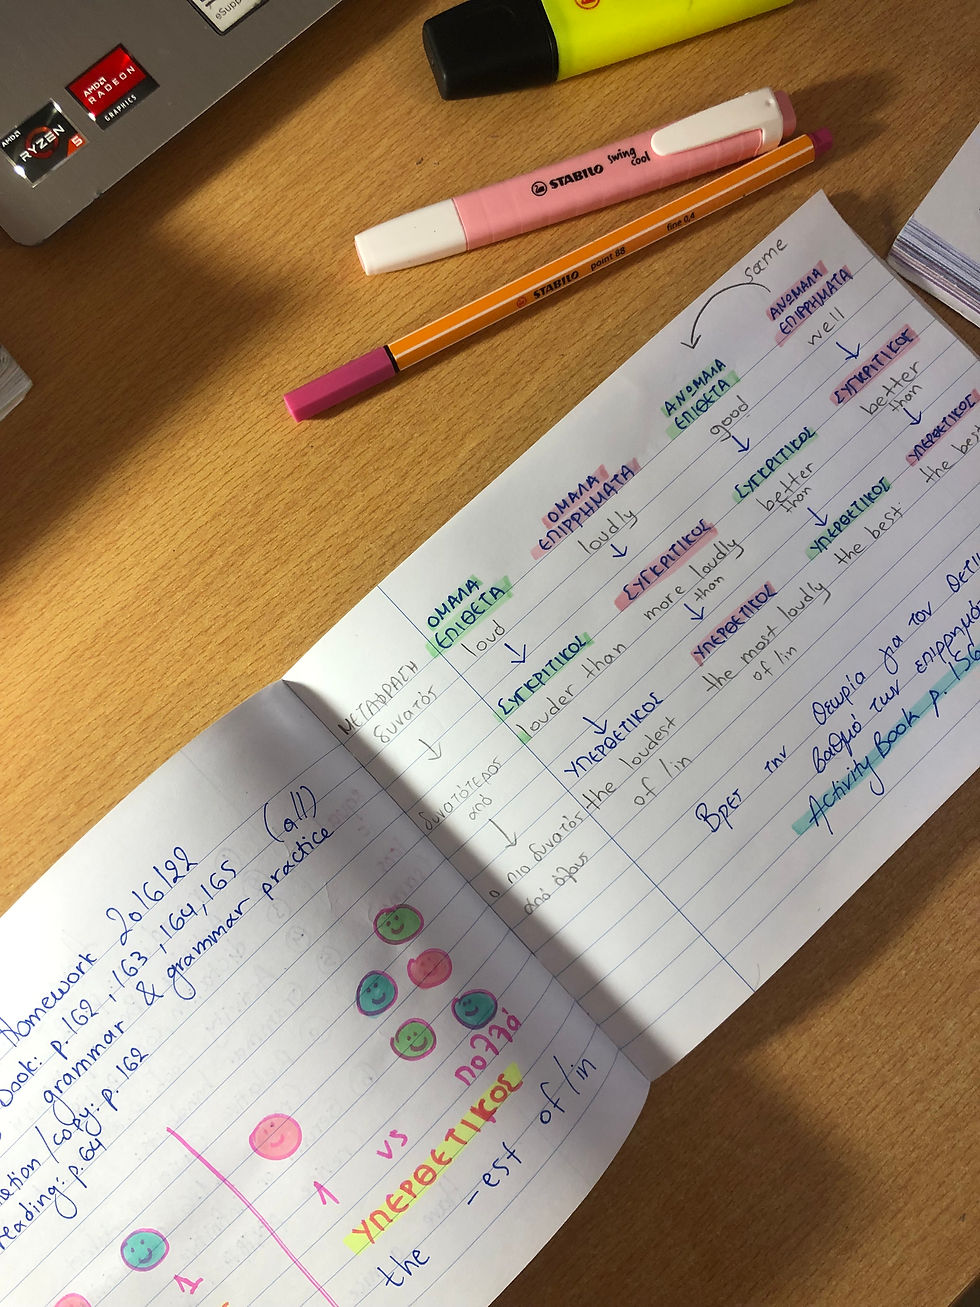 eSupp
AMD
RADEON
GRAPHICS
AMD
RYZEN
5
STABILO swing
cool
STABILO point 88 fine 0,4
same
ΑΝΩΜΑΛΑ
ΕΠΙΡΡΗΜΑΤΑ
well
ΣΥΓΚΡΙΤΙΚΟΣ
better
than
ΥΠΕΡΘΕΤΙΚΟΣ
the best
ΑΝΩΜΑΛΑ
ΕΠΙΘΕΤΑ
good
ΣΥΓΚΡΙΤΙΚΟΣ
better
than
ΥΠΕΡΘΕΤΙΚΟΣ
the best
ΟΜΑΛΑ
ΕΠΙΡΡΗΜΑΤΑ
loudly
ΣΥΓΚΡΙΤΙΚΟΣ
more loudly
than
ΥΠΕΡΘΕΤΙΚΟΣ
the most loudly
of/in
ΟΜΑΛΑ
ΕΠΙΘΕΤΑ
loud
ΣΥΓΚΡΙΤΙΚΟΣ
louder than
ΥΠΕΡΘΕΤΙΚΟΣ
the loudest
of/in
ΜΕΤΑΦΡΑΣΗ
δυνατός
δυνατότερος
από
ο πιο δυνατός
από όλους
Βρες την θεωρία για τον
βαθμό των
Activity Book p. 156
Homework 20/6/22
Book: p. 162, 163, 164, 165 (all)
grammar & grammar practice
/copy: p. 162
reading: p. 64
1 vs πολλά
ΥΠΕΡΘΕΤΙΚΟΣ
the -est of/in
1